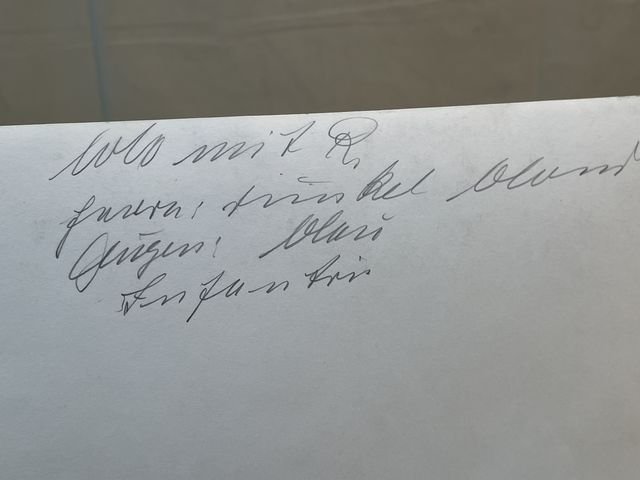 mit R.
Haare: dunkel blond
Augen: blau
Infantrie